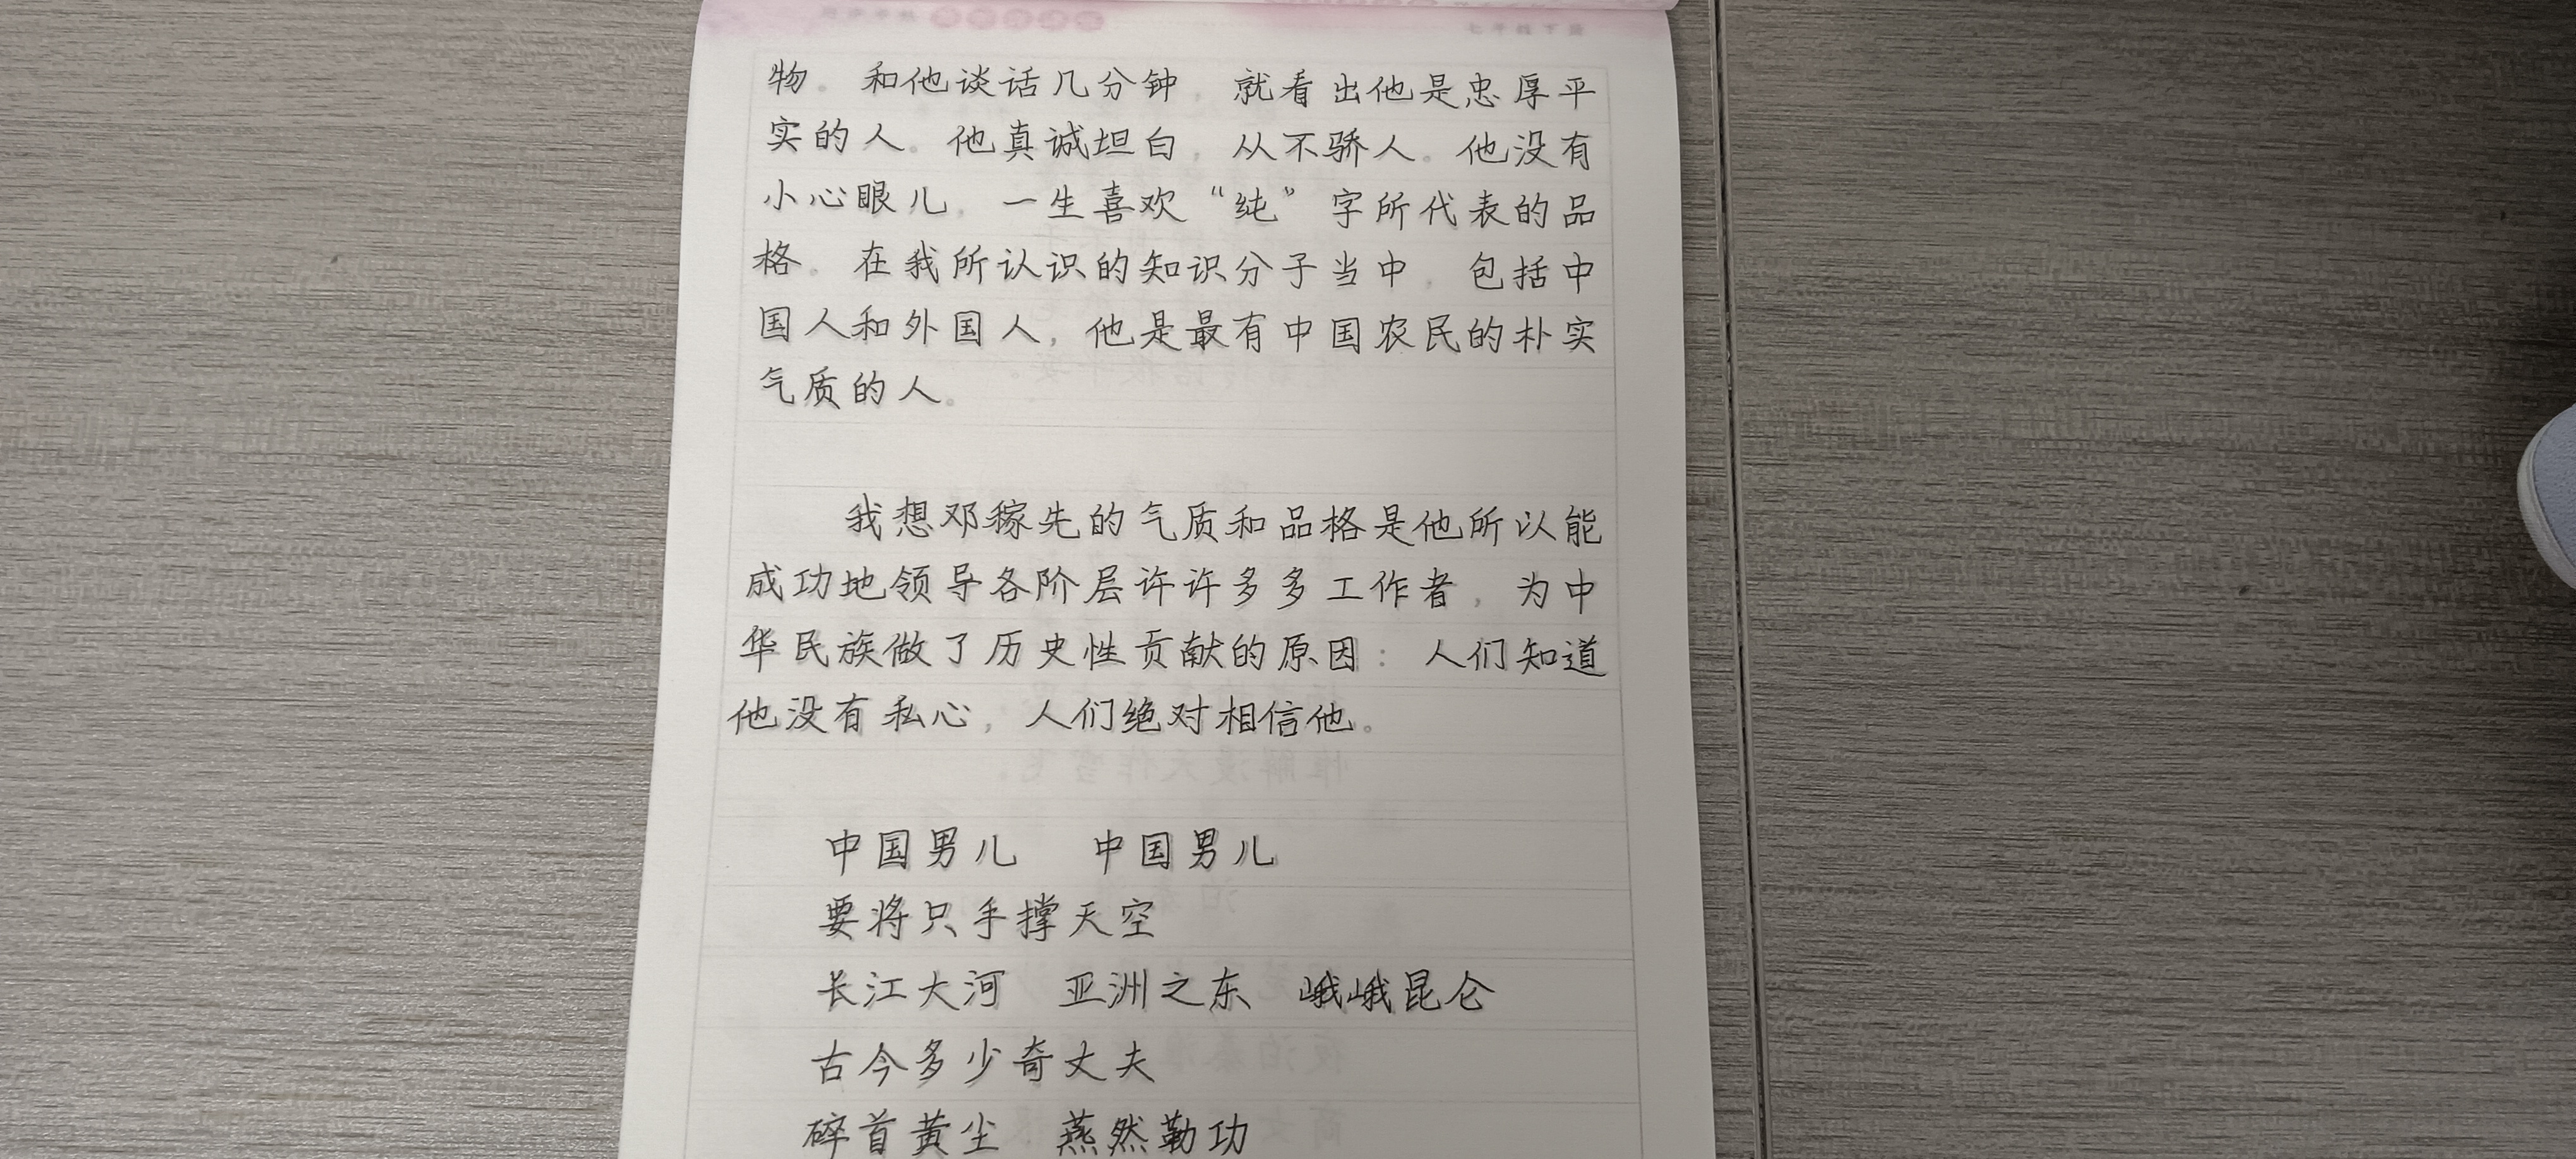 物。和他谈话几分钟，就看出他是忠厚平
实的人。他真诚坦白，从不骄人。他没有
小心眼儿，一生喜欢“纯”字所代表的品
格。在我所认识的知识分子当中，包括中
国人和外国人，他是最有中国农民的朴实
气质的人。
我想邓稼先的气质和品格是他所以能
成功地领导各阶层许许多多工作者，为中
华民族做了历史性贡献的原因：人们知道
他没有私心，人们绝对相信他。
中国男儿 中国男儿
要将只手撑天空
长江大河 亚洲之东 峨峨昆仑
古今多少奇丈夫
碎首黄尘 燕然勒功